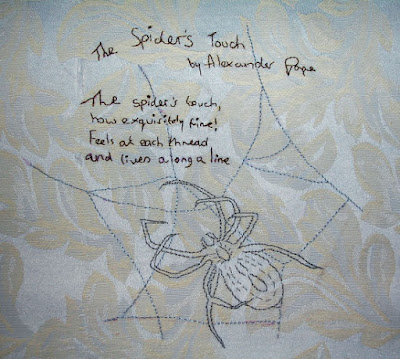 The Spider's Touch
by Alexander Pope
The spider's touch,
how exquisitely fine!
Feels at each thread
and lives along a line